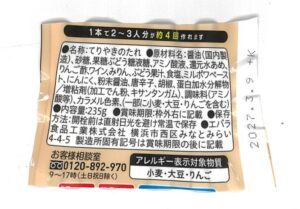 1本で2〜3人分が約4回作れます
●名称：てりやきのたれ ●原材料名：醤油(国内製造)、砂糖、果糖ぶどう糖液糖、アミノ酸液、還元水あめ、
りんご酢、ワイン、みりん、ぶどう果汁、食塩、ミルポワペースト、にんにく、粉末醤油、唐辛子、胡椒、蛋白加水分解物
/増粘剤(加工でん粉、キサンタンガム)、調味料(アミノ酸等)、カラメル色素、(一部に小麦・大豆・りんごを含む)
●内容量：235g ●賞味期限：枠外右に記載 ●保存方法：開栓前は直射日光を避け常温で保存 ●エバラ
食品工業株式会社 横浜市西区みなとみらい
4-4-5 製造所固有記号は賞味期限の後に記載
お客様相談室
0120-892-970
9〜17時(土日祝除く)
アレルギー表示対象物質
小麦・大豆・りんご
2027.3.19